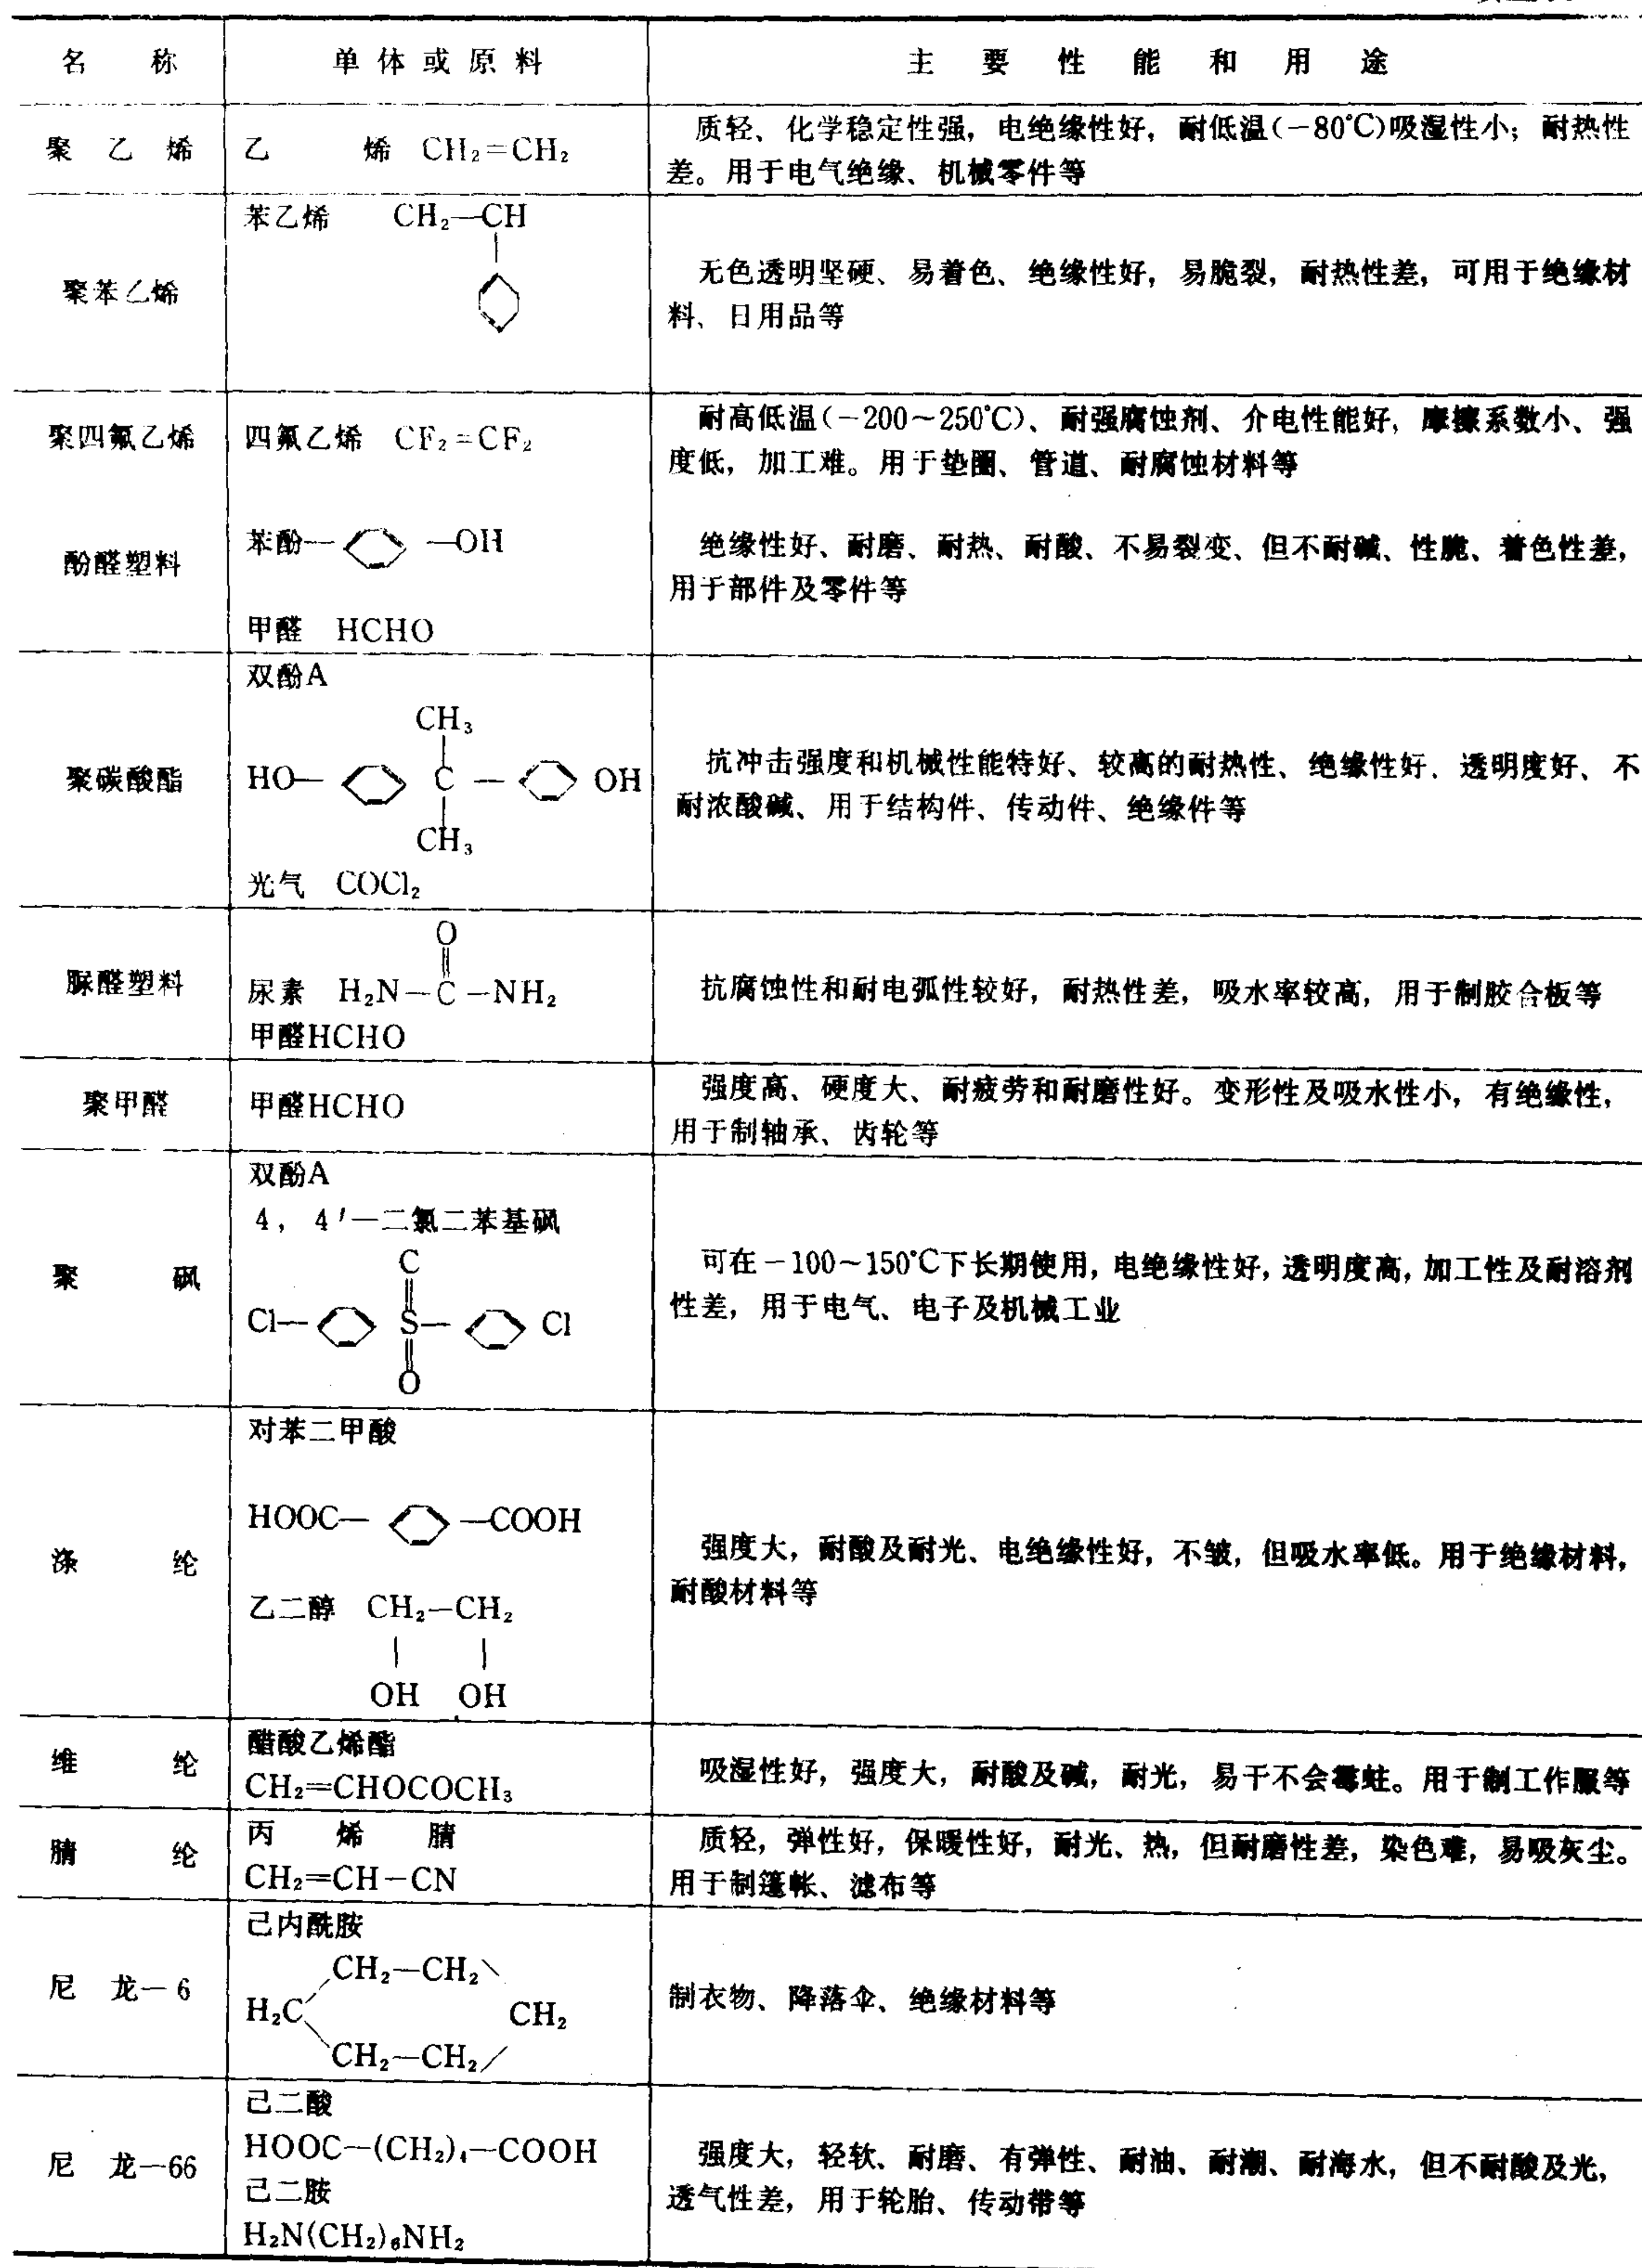 名 称 单体或原料 主要性能和用途
聚乙烯 乙 烯 CH₂=CH₂
质轻、化学稳定性强，电绝缘性好，耐低温(-80℃)吸湿性小；耐热性
差。用于电气绝缘、机械零件等
聚苯乙烯
苯乙烯 CH₂—CH
无色透明坚硬、易着色、绝缘性好，易脆裂，耐热性差，可用于绝缘材
料、日用品等
聚四氟乙烯 四氟乙烯 CF₂=CF₂
耐高低温(-200～250℃)、耐强腐蚀剂、介电性能好，摩擦系数小、强
度低，加工难。用于垫圈、管道、耐腐蚀材料等
酚醛塑料
苯酚— —OH
甲醛 HCHO
绝缘性好、耐磨、耐热、耐酸、不易裂变、但不耐碱、性脆、着色性差，
用于部件及零件等
聚碳酸酯
双酚A
CH₃
HO— C — OH
CH₃
光气 COCl₂
抗冲击强度和机械性能特好、较高的耐热性、绝缘性好．透明度好、不
耐浓酸碱、用于结构件、传动件、绝缘件等
脲醛塑料
O
尿素 H₂N—C—NH₂
甲醛HCHO
抗腐蚀性和耐电弧性较好，耐热性差，吸水率较高，用于制胶合板等
聚甲醛 甲醛HCHO
强度高、硬度大、耐疲劳和耐磨性好。变形性及吸水性小，有绝缘性，
用于制轴承、齿轮等
聚 砜
双酚A
4，4′—二氯二苯基砜
C
Cl— S— Cl
O
可在-100～150℃下长期使用，电绝缘性好，透明度高，加工性及耐溶剂
性差，用于电气、电子及机械工业
涤 纶
对苯二甲酸
HOOC— —COOH
乙二醇 CH₂—CH₂
OH OH
强度大，耐酸及耐光、电绝缘性好，不皱，但吸水率低。用于绝缘材料，
耐酸材料等
维 纶
醋酸乙烯酯
CH₂=CHOCOCH₃
吸湿性好，强度大，耐酸及碱，耐光，易干不会霉蛀。用于制工作服等
腈 纶
丙 烯 腈
CH₂=CH—CN
质轻，弹性好，保暖性好，耐光、热，但耐磨性差，染色难，易吸灰尘。
用于制篷帐、滤布等
尼 龙—6
己内酰胺
CH₂—CH₂
H₂C CH₂
CH₂—CH₂
制衣物、降落伞、绝缘材料等
尼 龙—66
己二酸
HOOC—(CH₂)₄—COOH
己二胺
H₂N(CH₂)₆NH₂
强度大，轻软、耐磨、有弹性、耐油、耐潮、耐海水，但不耐酸及光，
透气性差，用于轮胎、传动带等